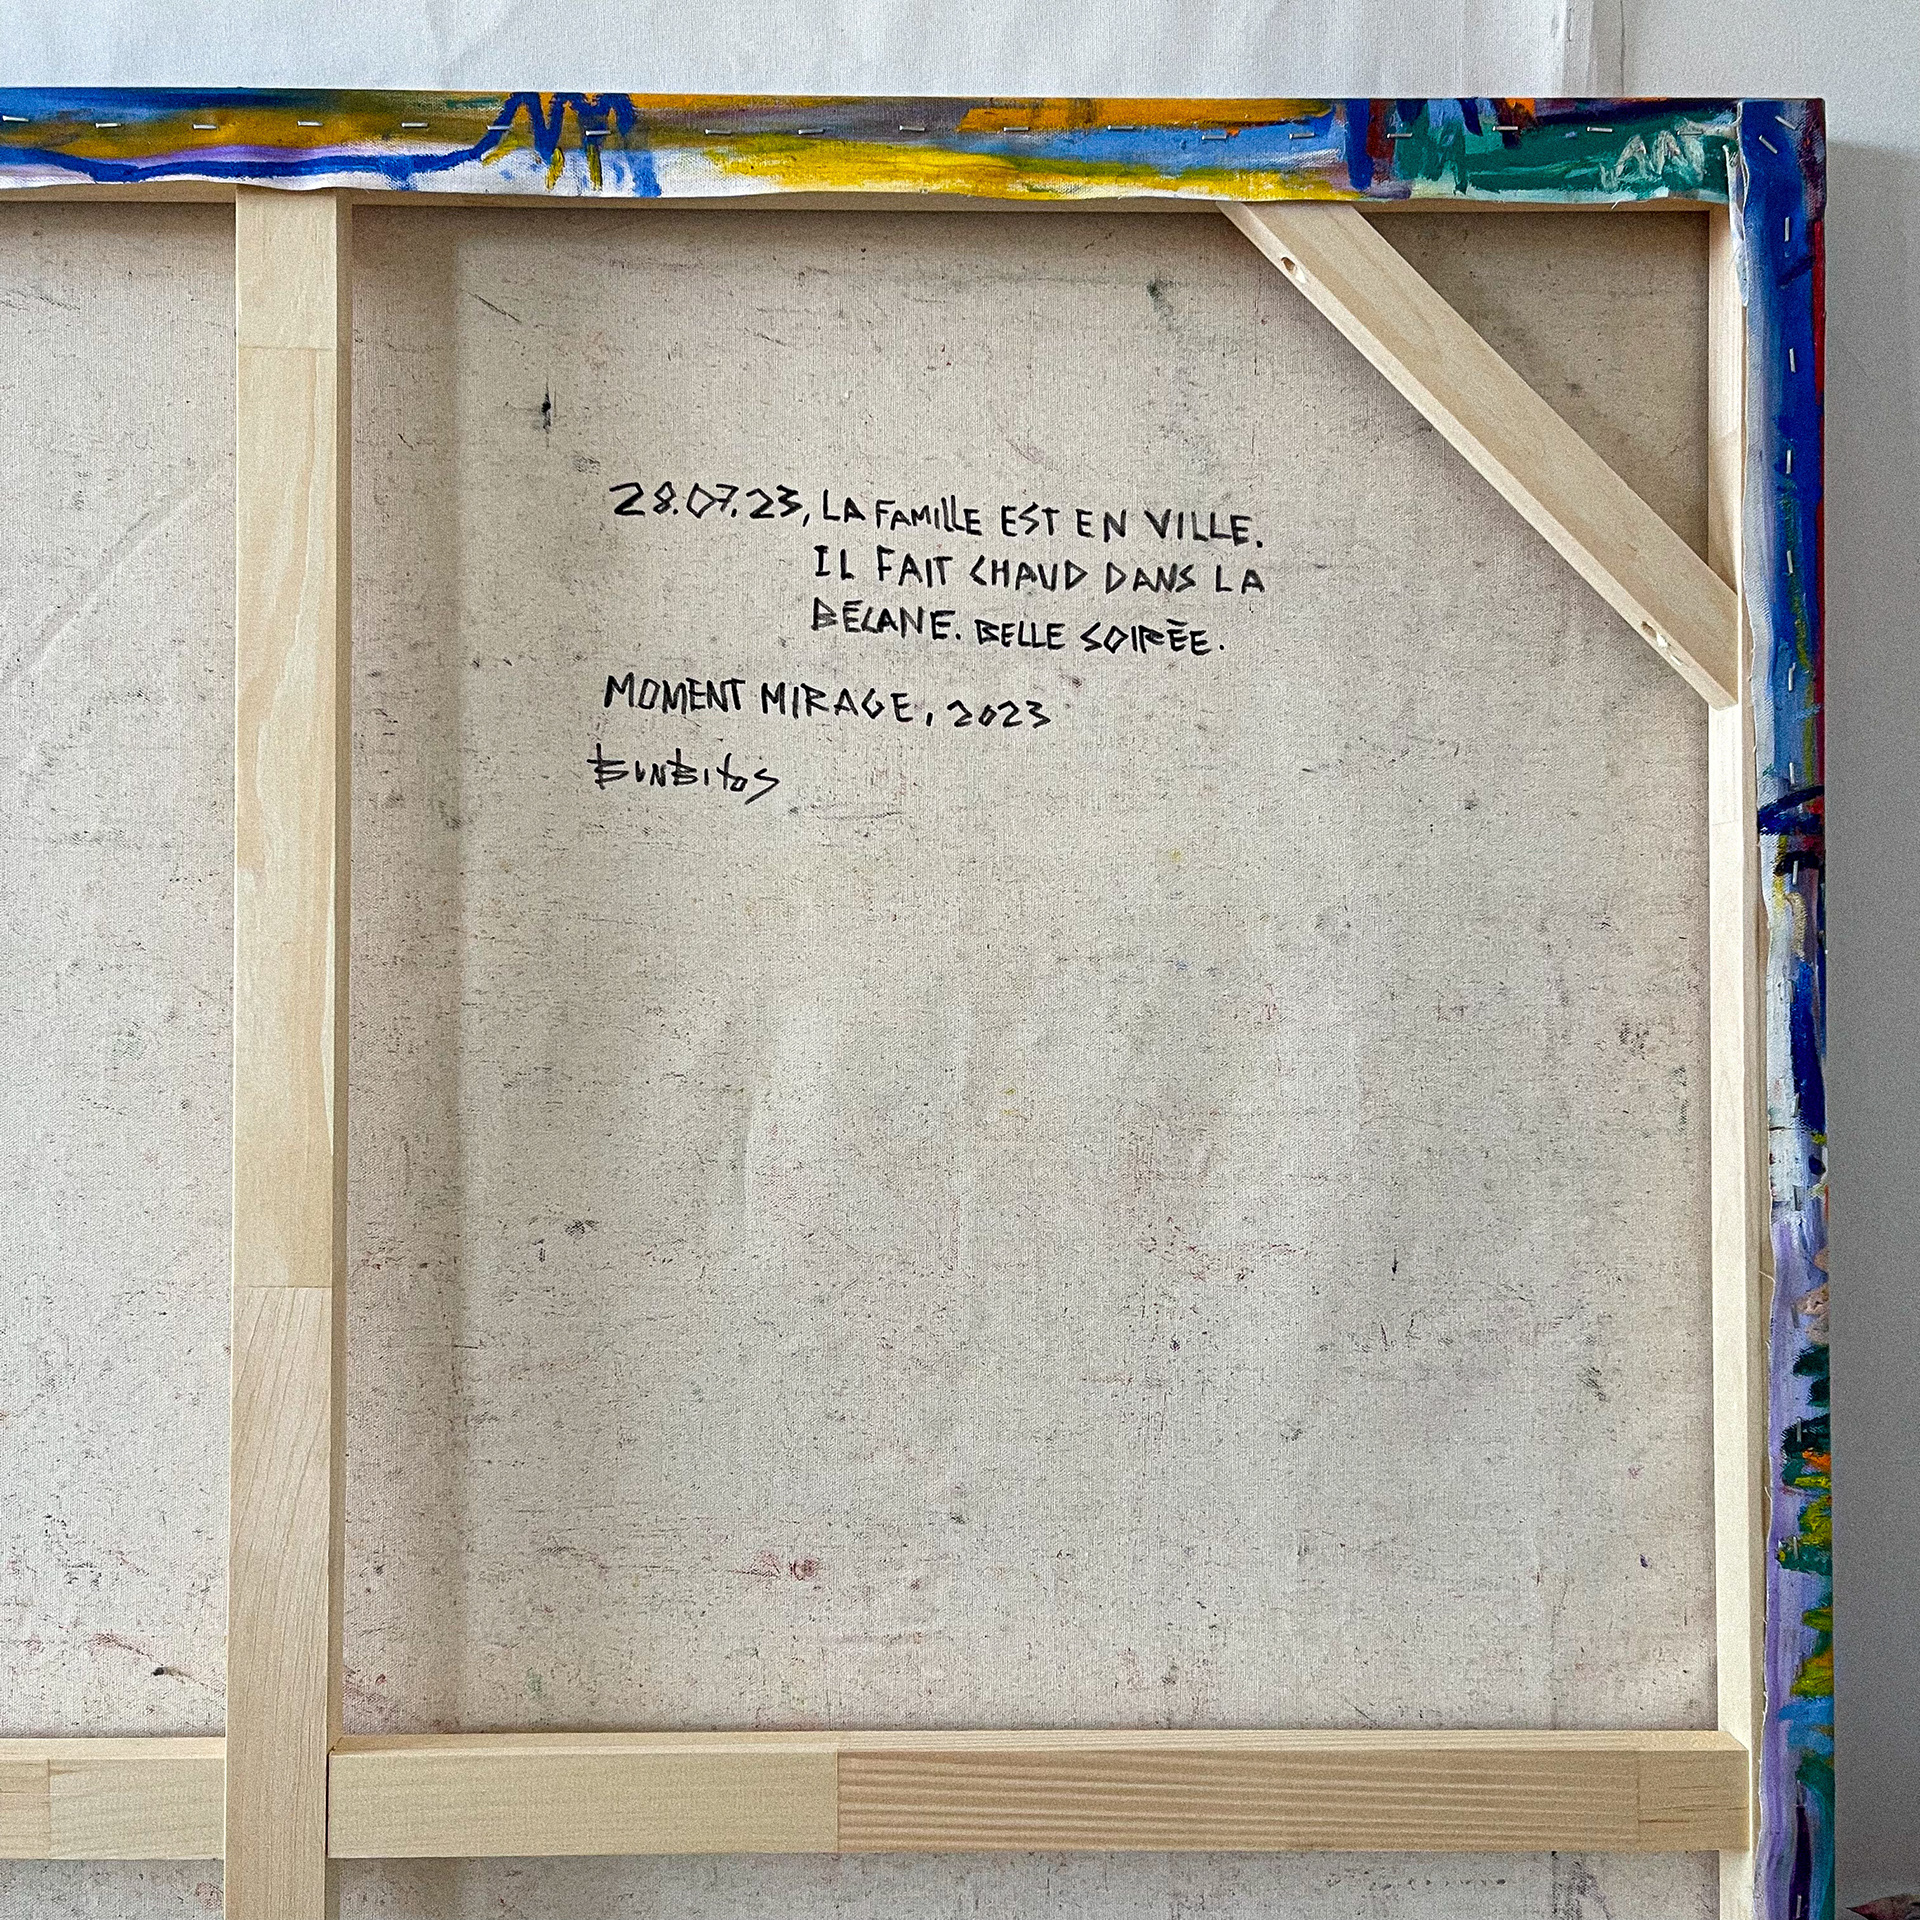 28.07.23, LA FAMILLE EST EN VILLE.
IL FAIT CHAUD DANS LA
BÉCANE. BELLE SOIRÉE.
MOMENT MIRAGE, 2023
BUNBITOS